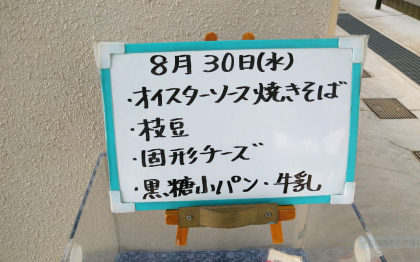 8月30日(水)
・オイスターソース焼きそば
・枝豆
・固形チーズ
・黒糖小パン・牛乳